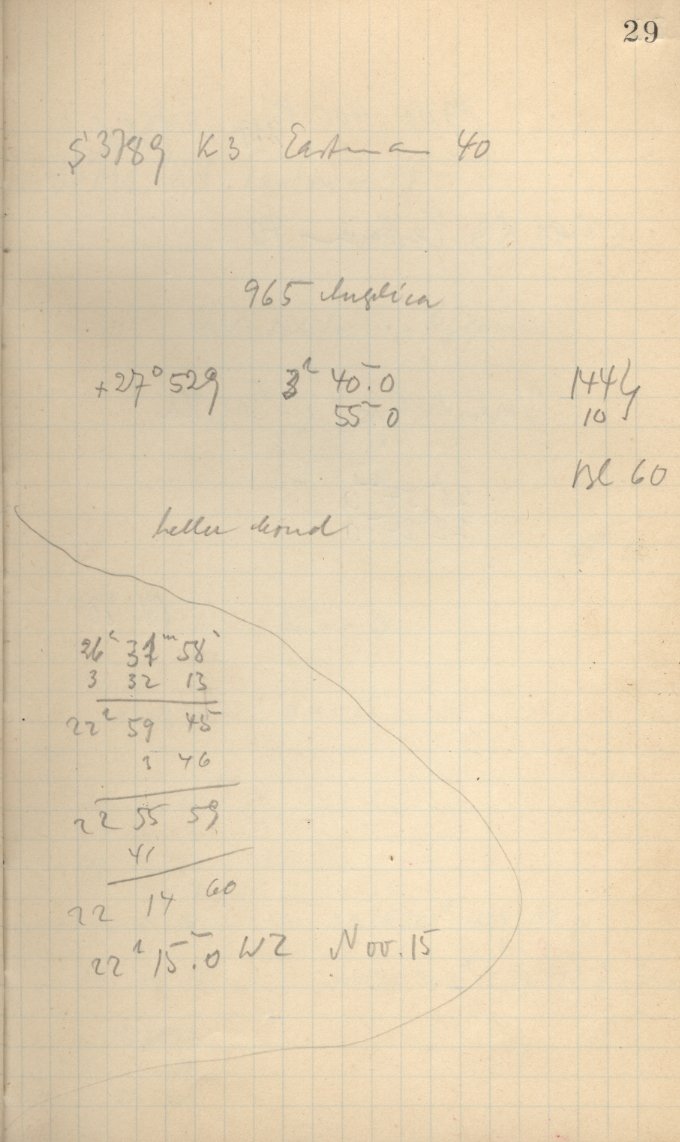 29
S 3789 K3 Eastman 40
965 Angelica
+27° 529 3ʰ 40ᵐ.0 144
55ᵐ 0 10
Bl 60
heller Mond
26ʰ 31ᵐ 58ˢ
3 32 13
22ʰ 59 45
3 46
22 55 59
41
22 14 60
22ʰ 15ᵐ.0 WZ Nov. 15